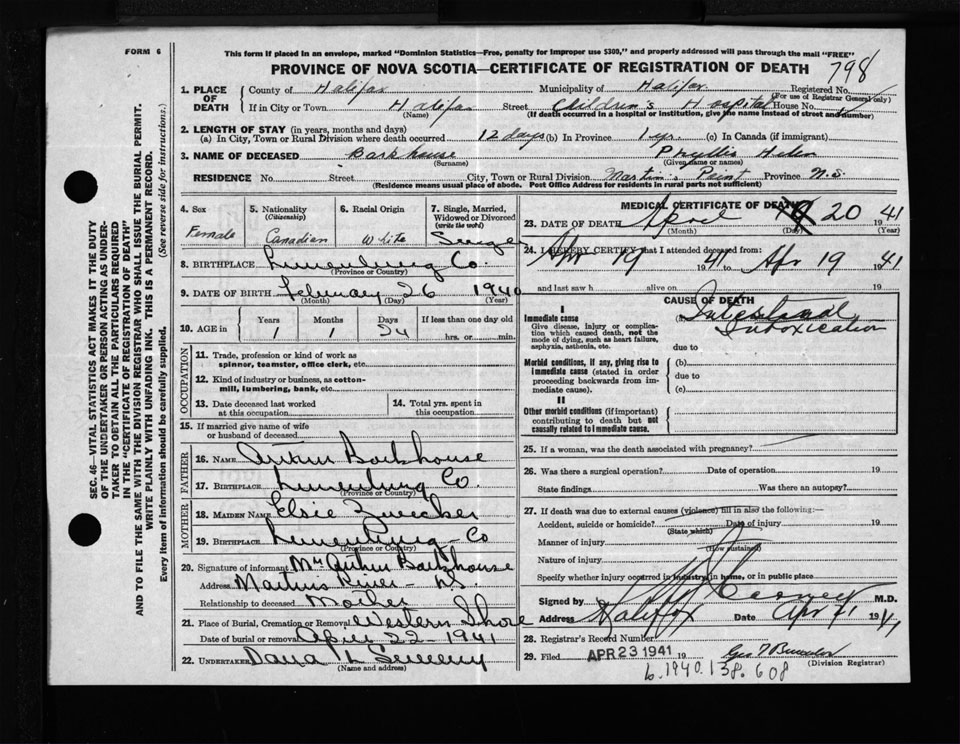 FORM 6
This form if placed in an envelope, marked "Dominion Statistics—Free, penalty for improper use $300," and properly addressed will pass through the mail "FREE"
PROVINCE OF NOVA SCOTIA—CERTIFICATE OF REGISTRATION OF DEATH
798
1. PLACE OF DEATH
County of Halifax Municipality of Halifax Registered No.
(For use of Registrar General only)
If in City or Town Halifax Street Children's Hospital House No.
(Name) (If death occurred in a hospital or institution, give the name instead of street and number)
2. LENGTH OF STAY (in years, months and days)
(a) In City, Town or Rural Division where death occurred 12 days (b) In Province 1 yr. (c) In Canada (if immigrant)
3. NAME OF DECEASED Barkhouse Phyllis Helen
(Surname) (Given name or names)
RESIDENCE No. Street City, Town or Rural Division Martin's Point Province N.S.
(Residence means usual place of abode. Post Office Address for residents in rural parts not sufficient)
4. Sex
Female
5. Nationality
(Citizenship)
Canadian
6. Racial Origin
White
7. Single, Married, Widowed or Divorced
(write the word)
Single
8. BIRTHPLACE Lunenburg Co.
(Province or Country)
9. DATE OF BIRTH February 26 1940
(Month) (Day) (Year)
10. AGE in
Years Months Days If less than one day old
1 1 24 hrs. or min.
OCCUPATION
11. Trade, profession or kind of work as spinner, teamster, office clerk, etc.
12. Kind of industry or business, as cotton-mill, lumbering, bank, etc.
13. Date deceased last worked at this occupation
14. Total yrs. spent in this occupation
15. If married give name of wife or husband of deceased
FATHER
16. NAME Arthur Barkhouse
17. BIRTHPLACE Lunenburg Co.
(Province or Country)
MOTHER
18. MAIDEN NAME Elsie Zwecker
19. BIRTHPLACE Lunenburg Co
(Province or Country)
20. Signature of informant Mrs Arthur Barkhouse
Address Martins River — NS
Relationship to deceased Mother
21. Place of Burial, Cremation or Removal Western Shore
Date of burial or removal April 22 - 1941
22. UNDERTAKER Dana L Sweeny
(Name and address)
MEDICAL CERTIFICATE OF DEATH
23. DATE OF DEATH April 20 1941
(Month) (Day) (Year)
24. I HEREBY CERTIFY that I attended deceased from:
Apr 19 1941 Apr 19 1941
and last saw h alive on 19
CAUSE OF DEATH
I
Immediate cause
Give disease, injury or complication which caused death, not the mode of dying, such as heart failure, asphyxia, asthenia, etc.
(a) Intestinal Intoxication
due to
Morbid conditions, if any, giving rise to immediate cause (stated in order proceeding backwards from immediate cause).
(b)
due to
(c)
II
Other morbid conditions (if important) contributing to death but not causally related to immediate cause.
25. If a woman, was the death associated with pregnancy?
26. Was there a surgical operation? Date of operation 19
State findings Was there an autopsy?
27. If death was due to external causes (violence) fill in also the following:—
Accident, suicide or homicide? Date of injury 19
(State which)
Manner of injury
(How sustained)
Nature of injury
Specify whether injury occurred in industry, in home, or in public place
Signed by M.D.
Address Halifax Date Apr 21 1941
28. Registrar's Record Number
29. Filed APR 23 1941 19
(Division Registrar)
b. 1940. 138. 608
SEC. 46—VITAL STATISTICS ACT MAKES IT THE DUTY
OF THE UNDERTAKER OR PERSON ACTING AS UNDER-
TAKER TO OBTAIN ALL THE PARTICULARS REQUIRED
IN THE "CERTIFICATE OF REGISTRATION OF DEATH"
AND TO FILE THE SAME WITH THE DIVISION REGISTRAR WHO SHALL ISSUE THE BURIAL PERMIT.
WRITE PLAINLY WITH UNFADING INK. THIS IS A PERMANENT RECORD.
Every item of information should be carefully supplied. (See reverse side for instructions.)